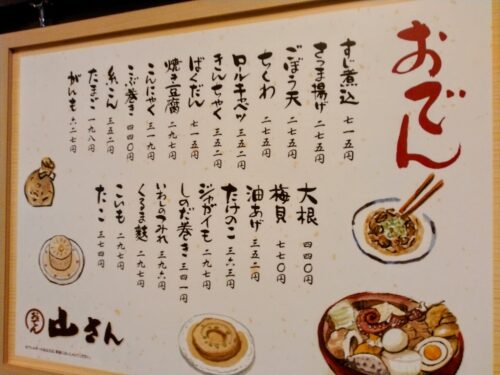 おでん
すじ煮込 七一五円
さつま揚げ 二七五円
ごぼう天 二七五円
ちくわ 二七五円
ロールキャベツ 三五二円
きんちゃく 三五二円
ばくだん 三五二円
焼き豆腐 二九七円
こんにゃく 三一九円
こぶ巻き 四四〇円
糸こん 三五二円
たまご 一九八円
がんも 六二七円
大根 四四〇円
梅貝 七七〇円
油あげ 三五二円
たけのこ 三六三円
ジャガイモ 二九七円
しのだ巻き 三四一円
いわしのつみれ 三九六円
くるま麩 二九七円
こいも 二九七円
たこ 三七四円
おでん
山さん